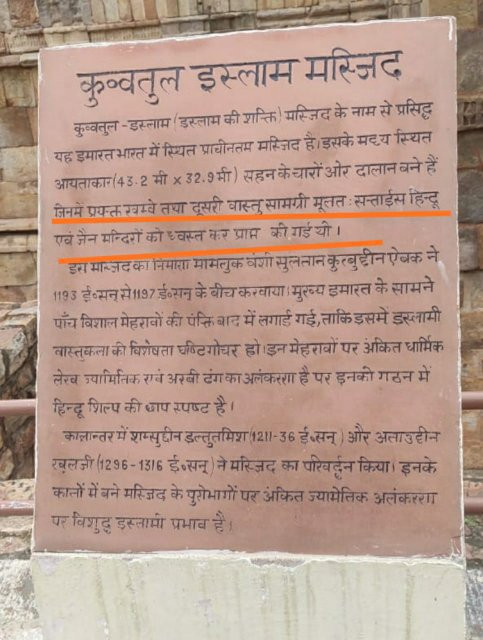 कुव्वतुल इस्लाम मस्जिद
कुव्वतुल -इस्लाम (इस्लाम की शक्ति) मस्जिद के नाम से प्रसिद्ध
यह इमारत भारत में स्थित प्राचीनतम मस्जिद है। इसके मध्य स्थित
आयताकार (43.2 मी x 32.9 मी) सहन के चारों ओर दालान बने हैं
जिनमें प्रयुक्त खम्बे तथा दूसरी वास्तु सामग्री मूलत: सत्ताईस हिन्दू
एवं जैन मन्दिरों को ध्वस्त कर प्राप्त की गई थी।
इस मस्जिद का निर्माण मामलुक वंशी सुलतान कुतुबुद्दीन ऐबक ने
1193 ई०सन् से 1197 ई०सन् के बीच करवाया। मुख्य इमारत के सामने
पाँच विशाल मेहराबों की पंक्ति बाद में लगाई गई, ताकि इसमें इस्लामी
वास्तुकला की विशेषता दृष्टिगोचर हो। इन मेहराबों पर अंकित धार्मिक
लेख ज्यामितिक एवं अरबी ढंग का अलंकरण है पर इनकी गठन में
हिन्दू शिल्प की छाप स्पष्ट है।
कालान्तर में शम्सुद्दीन इल्तुतमिश (1211-36 ई०सन्) और अलाउद्दीन
खलजी (1296-1316 ई०सन्) ने मस्जिद का परिवर्द्धन किया। इनके
कालों में बने मस्जिद के पुरोभागों पर अंकित ज्यामेतिक अलंकरण
पर विशुद्ध इस्लामी प्रभाव है।